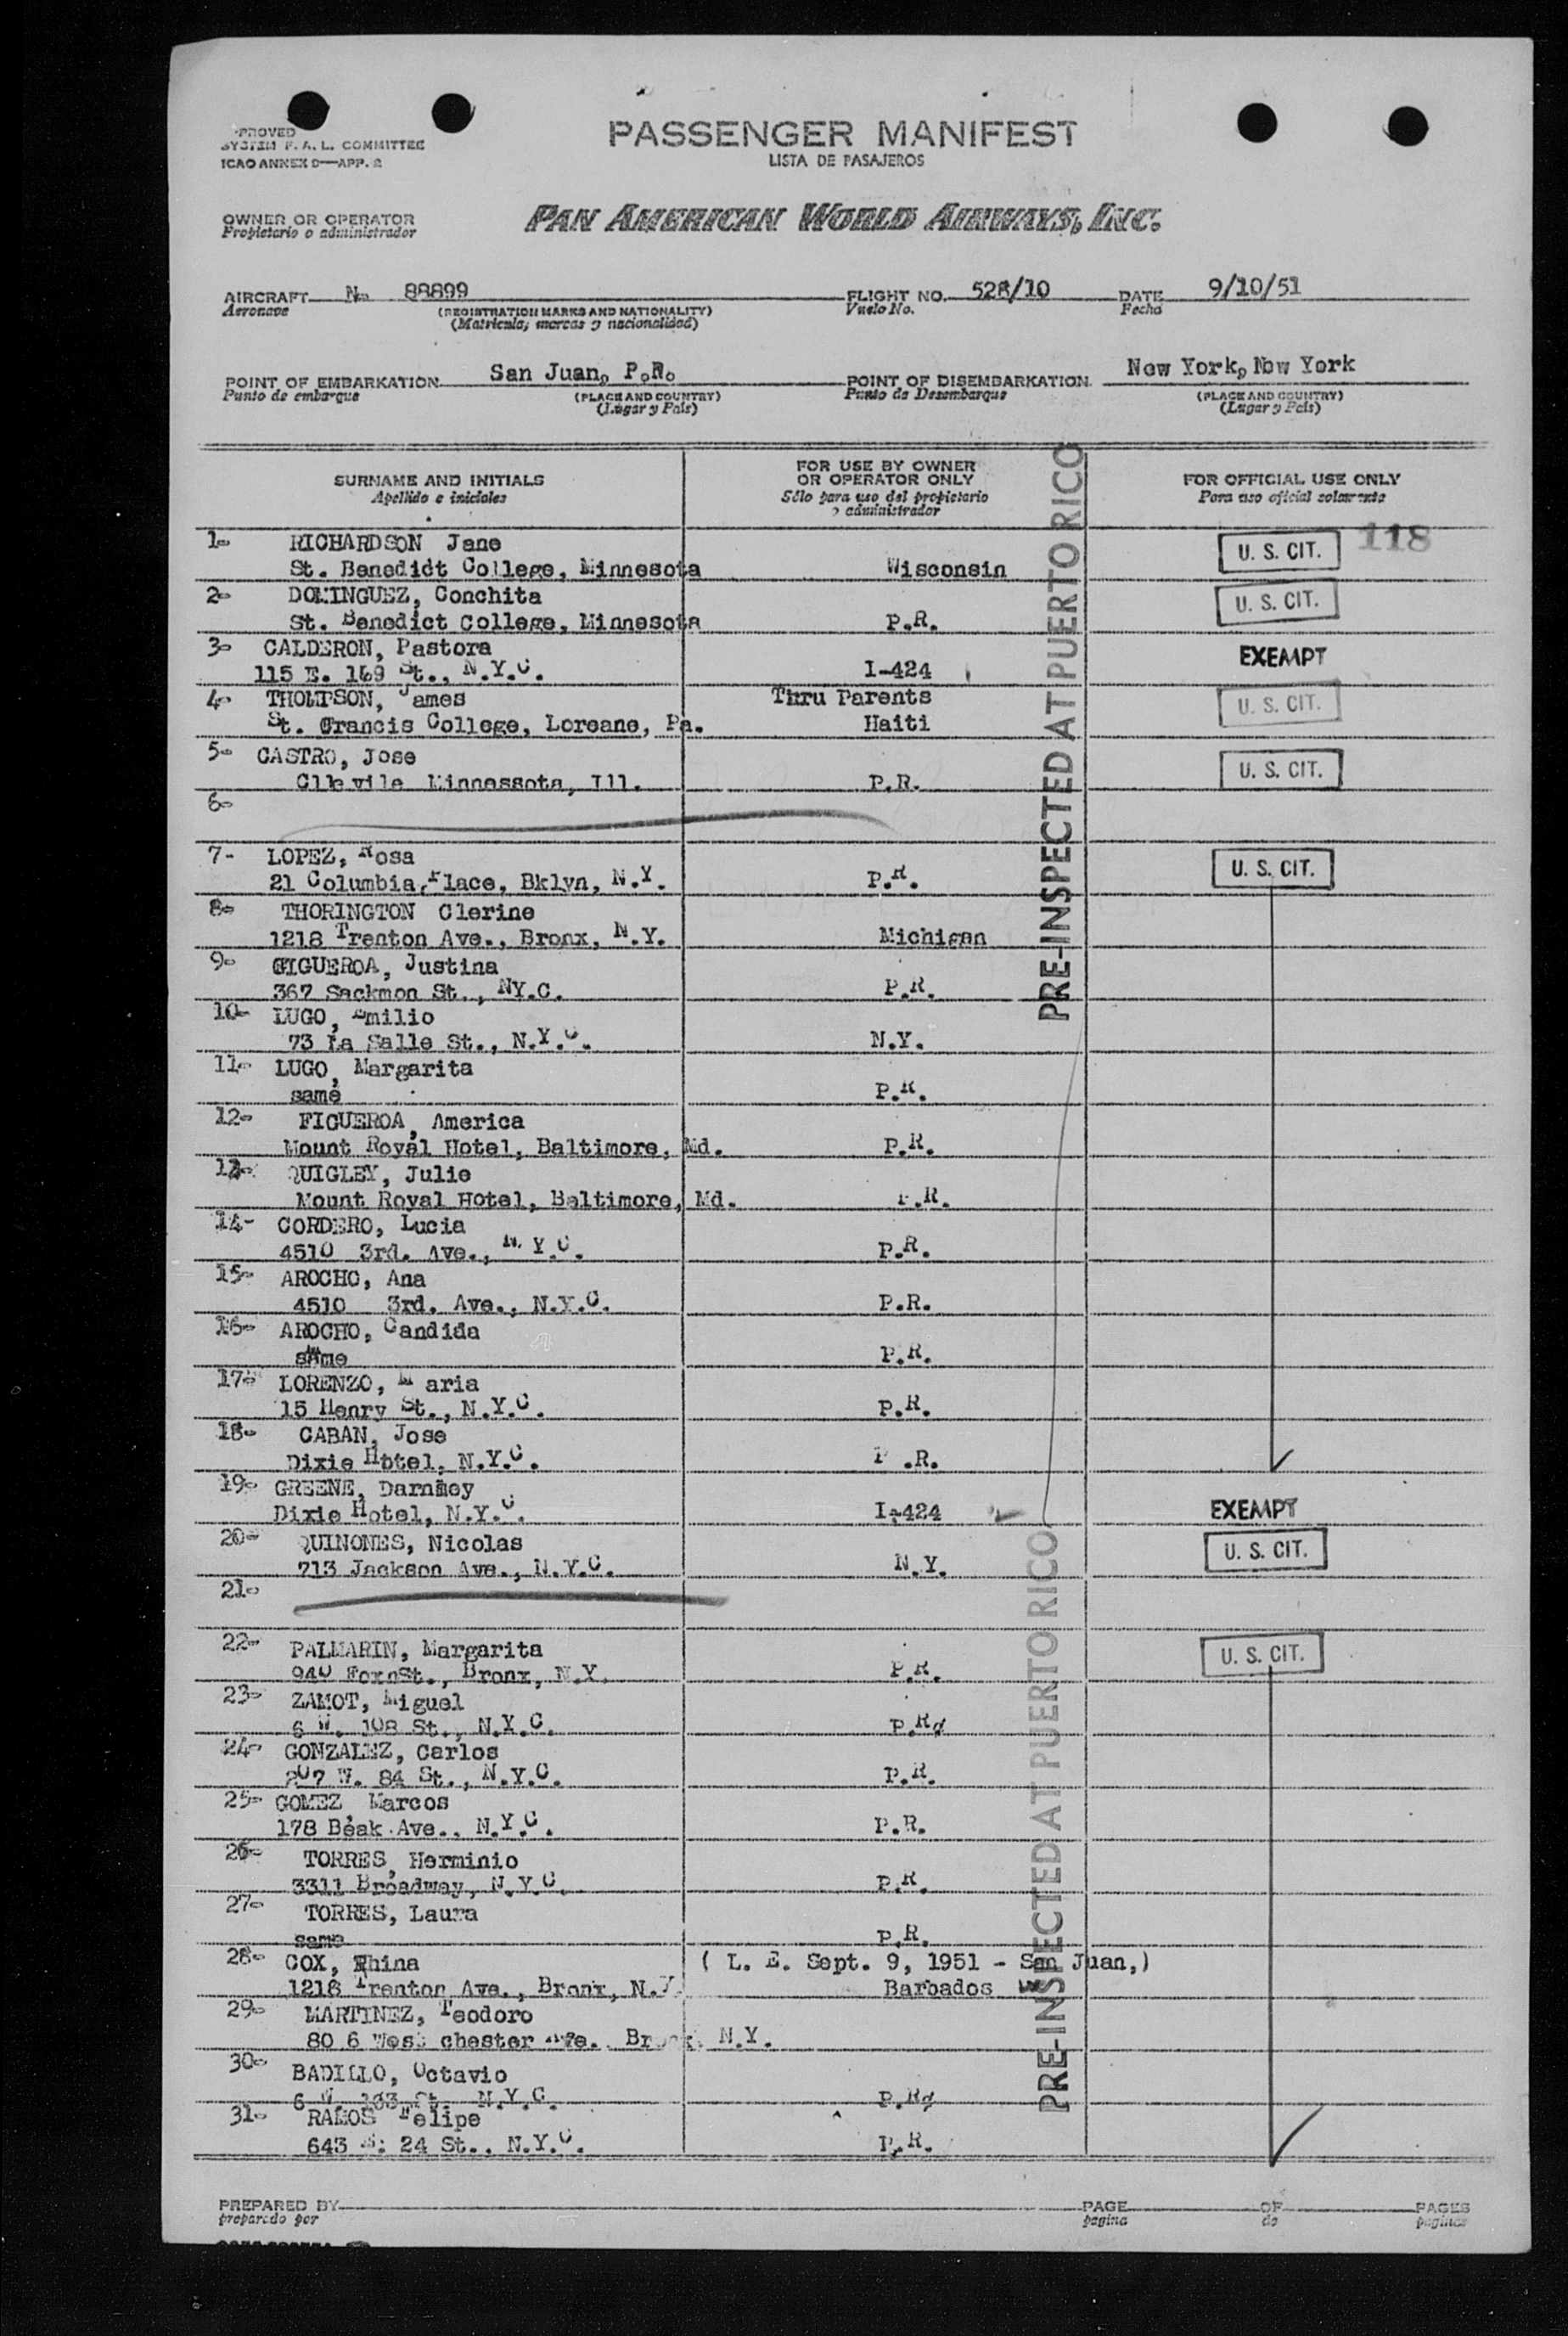 PROVED
SYSTEM F. A. L. COMMITTEE
ICAO ANNEX 9—APP. 2
PASSENGER MANIFEST
LISTA DE PASAJEROS
OWNER OR OPERATOR
Propietario o administrador
PAN AMERICAN WORLD AIRWAYS, INC.
AIRCRAFT N- 88899 FLIGHT NO. 528/10 DATE 9/10/51
Aeronave (REGISTRATION MARKS AND NATIONALITY) Vuelo No. Fecha
(Matricula, marcas y nacionalidad)
POINT OF EMBARKATION San Juan, P.R. POINT OF DISEMBARKATION New York, New York
Punto de embarque (PLACE AND COUNTRY) Punto de Desembarque (PLACE AND COUNTRY)
(Lugar y País) (Lugar y País)
SURNAME AND INITIALS FOR USE BY OWNER OR OPERATOR ONLY FOR OFFICIAL USE ONLY
Apellido e iniciales Sólo para uso del propietario o administrador Para uso oficial solamente
1- RICHARDSON Jane U. S. CIT. 118
St. Benedidt College, Minnesota Wisconsin
2- DOMINGUEZ, Conchita U. S. CIT.
St. Benedict College, Minnesota P.R.
3- CALDERON, Pastora EXEMPT
115 E. 169 St., N.Y.C. I-424
4- THOMPSON, James Thru Parents U. S. CIT.
St. Grancis College, Loreane, Pa. Haiti
5- CASTRO, Jose U. S. CIT.
Minnessota, Ill. P.R.
6-
7- LOPEZ, Rosa U. S. CIT.
21 Columbia Place, Bklyn, N.Y. P.R.
8- THORINGTON Clerine
1218 Trenton Ave., Bronx, N.Y. Michigan
9- GIGUEROA, Justina
367 Sackmon St., NY.C. P.R.
10- LUGO, Emilio
73 La Salle St., N.Y.C. N.Y.
11- LUGO, Margarita
same P.R.
12- FIGUEROA, America
Mount Royal Hotel, Baltimore, Md. P.R.
13- QUIGLEY, Julie
Mount Royal Hotel, Baltimore, Md. P.R.
14- CORDERO, Lucia
4510 3rd. Ave., N.Y.C. P.R.
15- AROCHO, Ana
4510 3rd. Ave., N.Y.C. P.R.
16- AROCHO, Candida
same P.R.
17- LORENZO, Maria
15 Henry St., N.Y.C. P.R.
18- CABAN, Jose
Dixie Hotel, N.Y.C. P.R.
19- GREENE,
Dixie Hotel, N.Y.C. I-424 EXEMPT
20- QUINONES, Nicolas U. S. CIT.
713 Jackson Ave., N.Y.C. N.Y.
21-
22- PALMARIN, Margarita U. S. CIT.
940 St., Bronx, N.Y. P.R.
23- ZAMOT, Miguel
6 W. 108 St., N.Y.C. P.R.
24- GONZALEZ, Carlos
207 W. 84 St., N.Y.C. P.R.
25- GOMEZ, Marcos
178 Beak Ave., N.Y.C. P.R.
26- TORRES, Herminio
3311 Broadway, N.Y.C. P.R.
27- TORRES, Laura
same P.R.
28- COX, Rhina ( L. E. Sept. 9, 1951 - San Juan,)
1218 Trenton Ave., Bronx, N.Y. Barbados
29- MARTINEZ, Teodoro
80 6 West chester Ave., Bronx, N.Y.
30- BADILLO, Octavio
6 W. 103 St., N.Y.C. P.R.
31- RAMOS Felipe
643 24 St., N.Y.C. P.R.
PRE-INSPECTED AT PUERTO RICO
PRE-INSPECTED AT PUERTO RICO
PREPARED BY PAGE OF PAGES
preparado por pagina de paginas